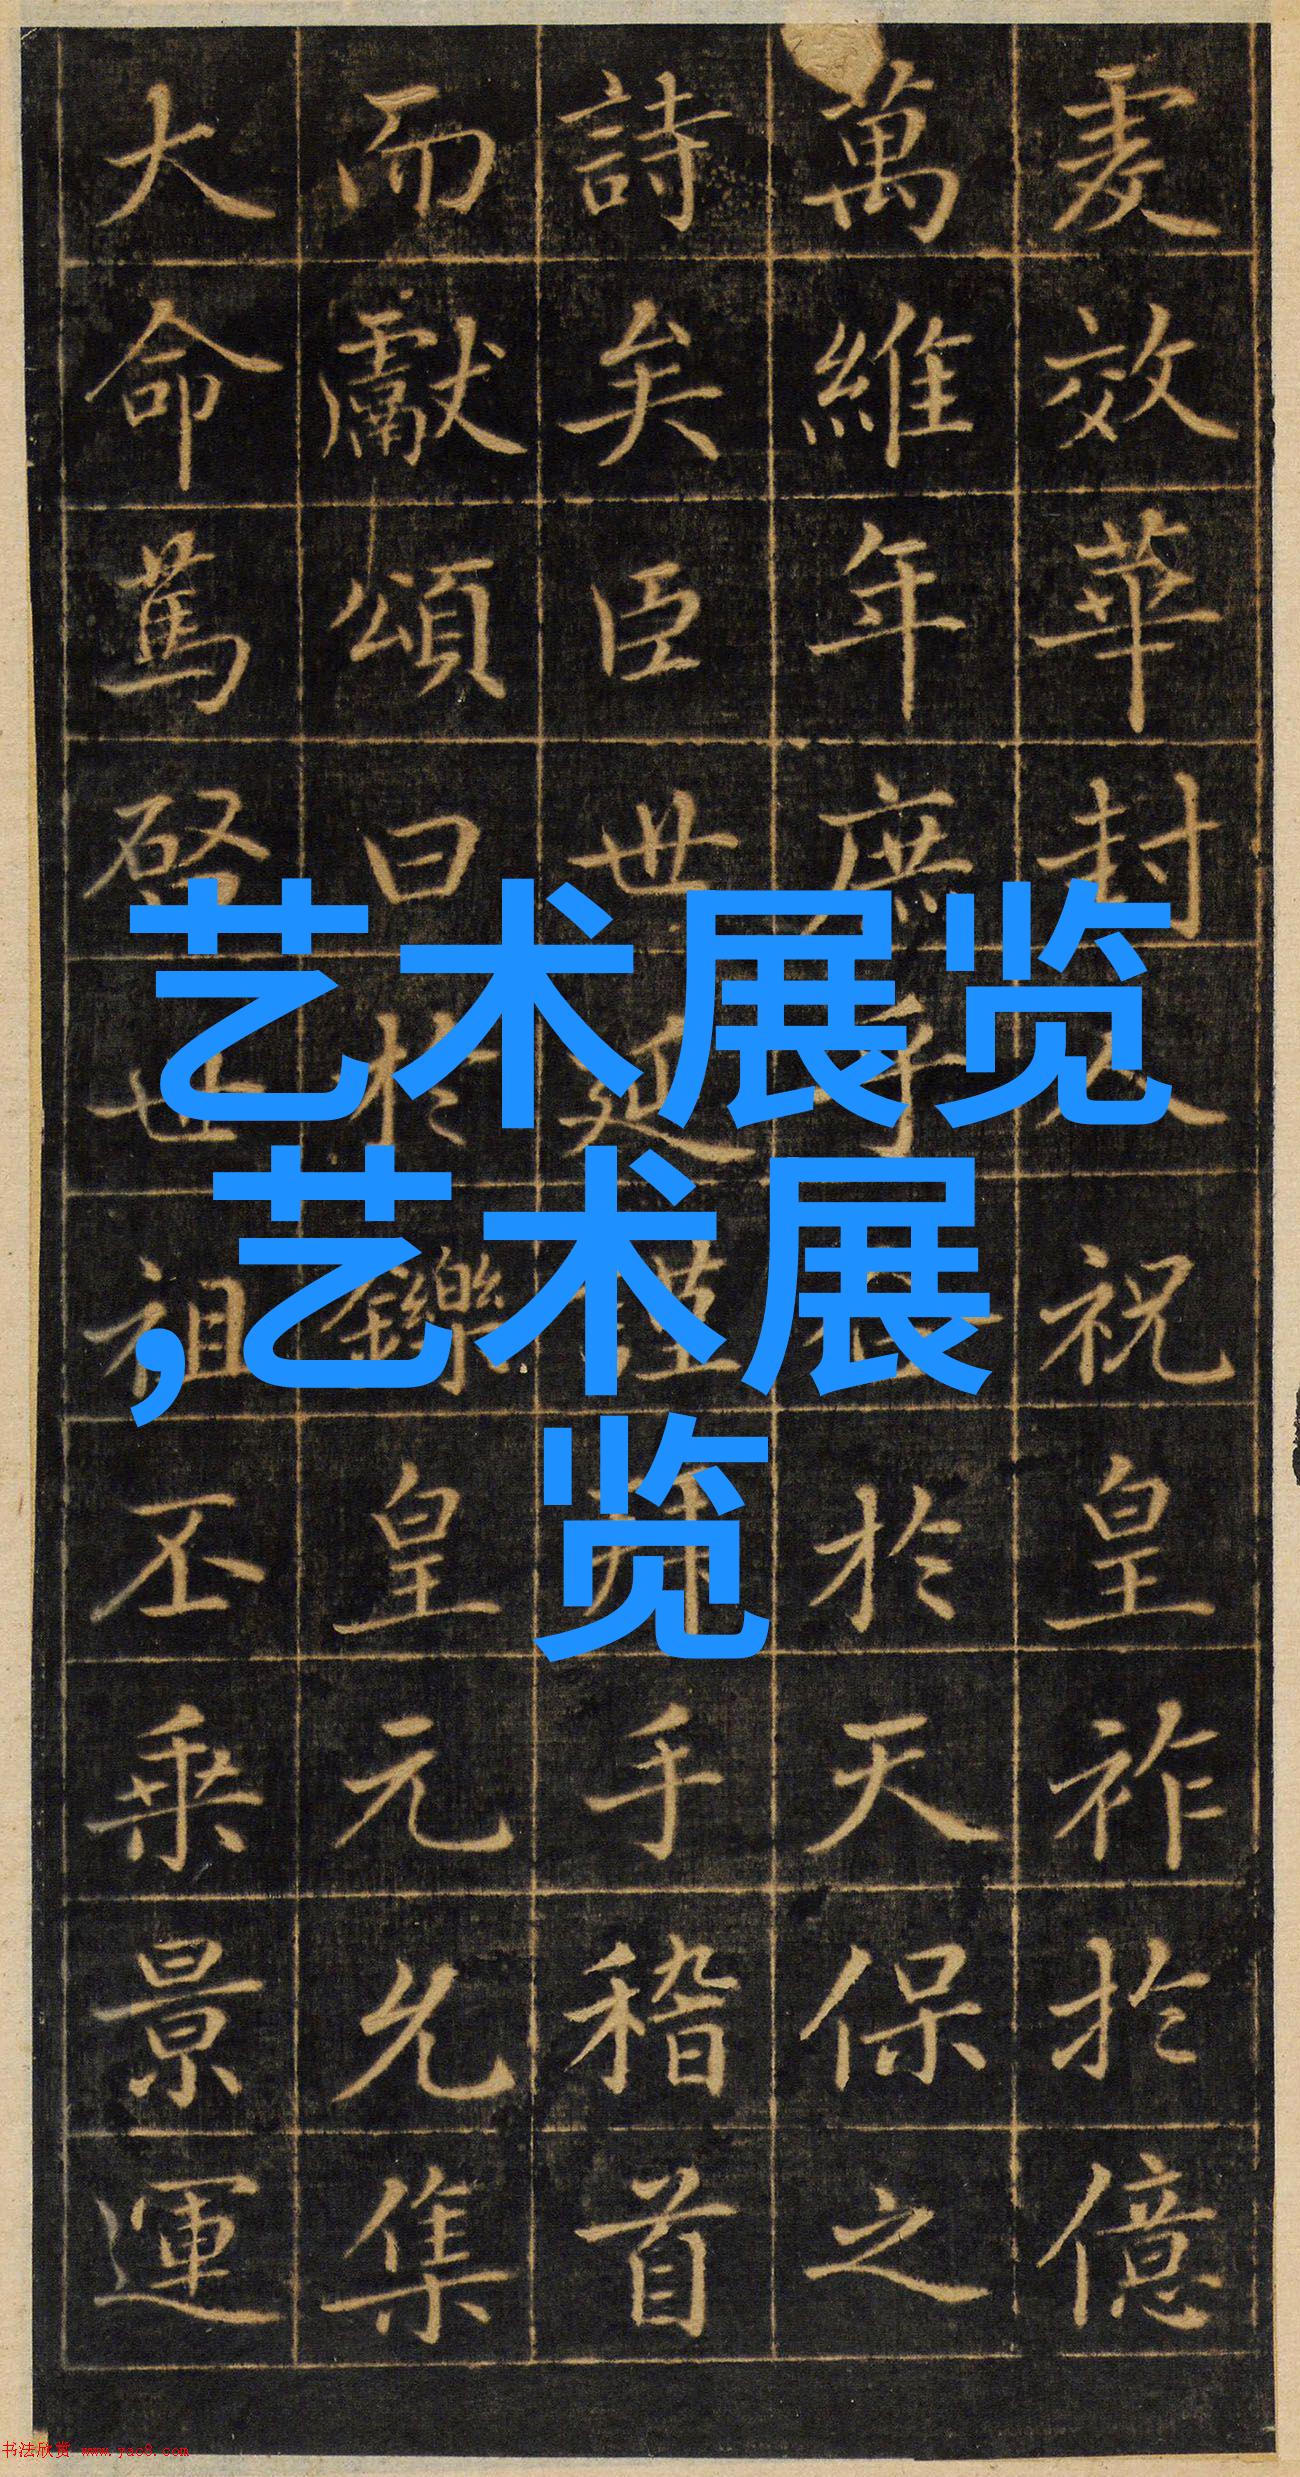 爰效華封人祝皇祚於億
萬維年庶乎於天保之
詩矣臣世延謹拜手稽首
而獻頌曰於鑠皇元允集
大命篤啓世祖丕乘景運
艺术展览
,艺术展
览
书法欣赏 www.yac8.com